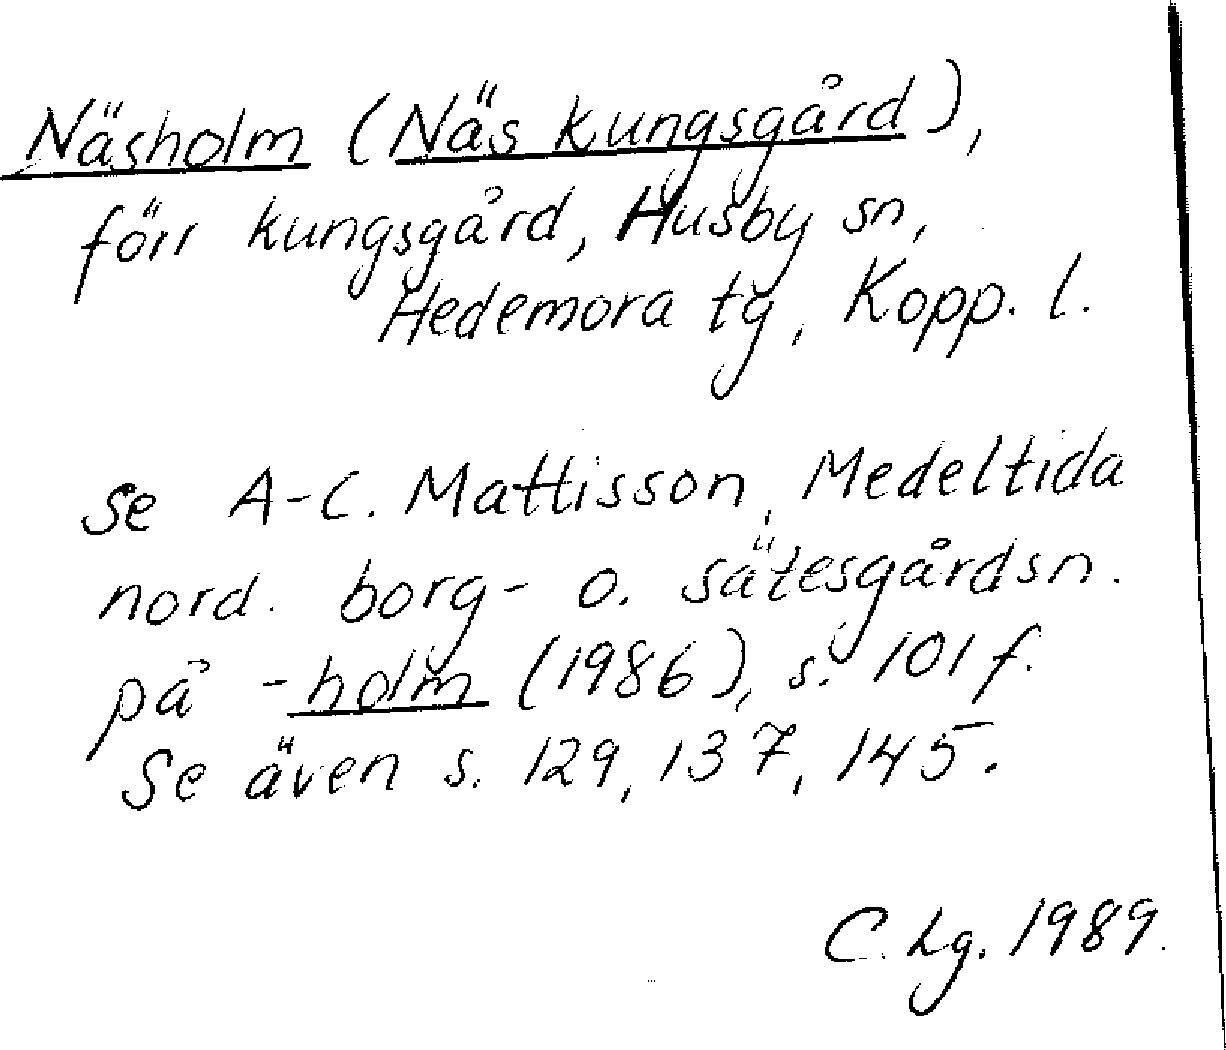 Näsholm (Näs kungsgård),
förr kungsgård, Husby sn,
Hedemora tg, Kopp. l.
Se A-C. Mattisson, Medeltida
nord. borg- o. sätesgårdsn.
på -holm (1986), s. 101 f.
Se även s. 129, 137, 145.
C. Lg. 1989.